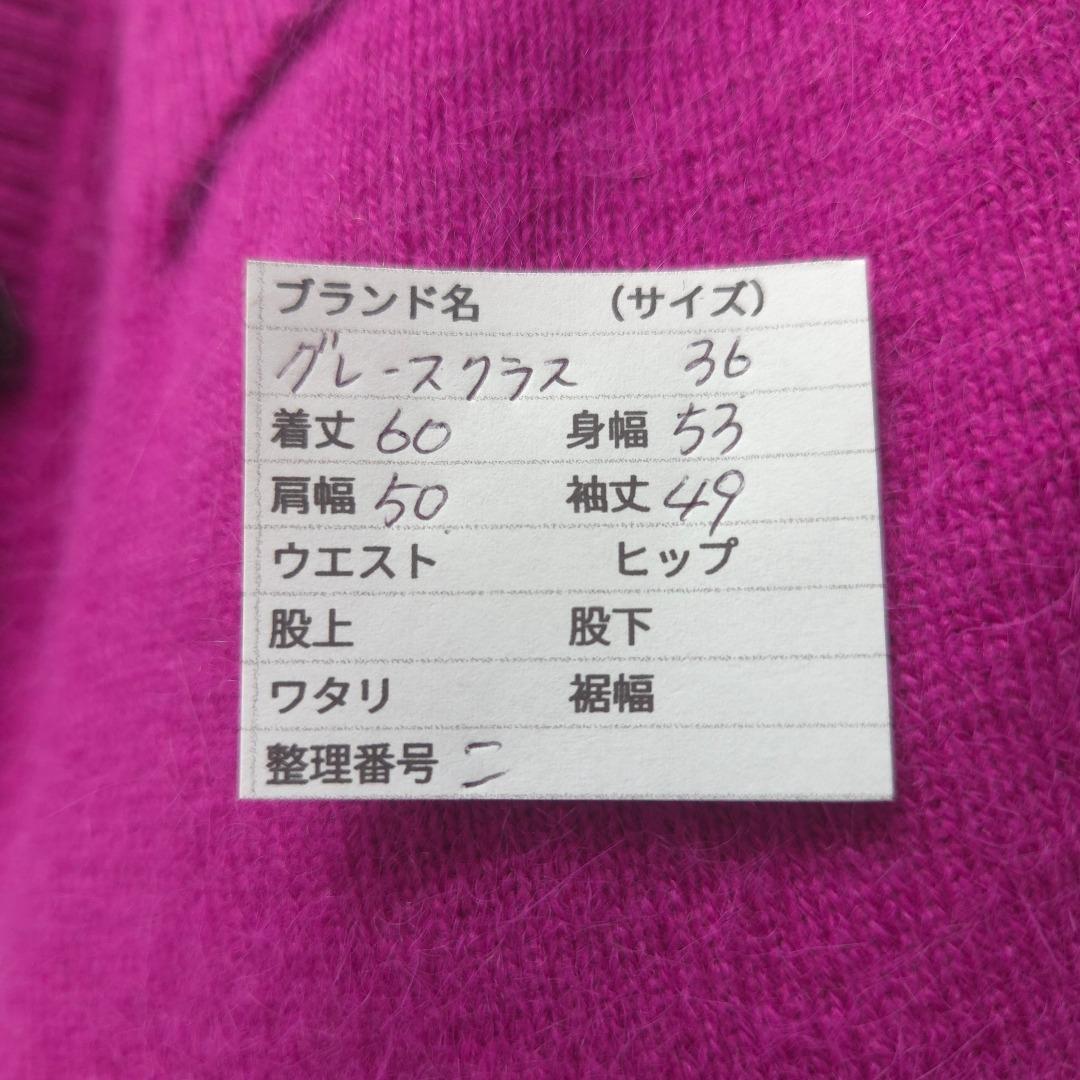 ブランド名 (サイズ)
グレースクラス 36
着丈 60 身幅 53
肩幅 50 袖丈 49
ウエスト ヒップ
股上 股下
ワタリ 裾幅
整理番号 コ